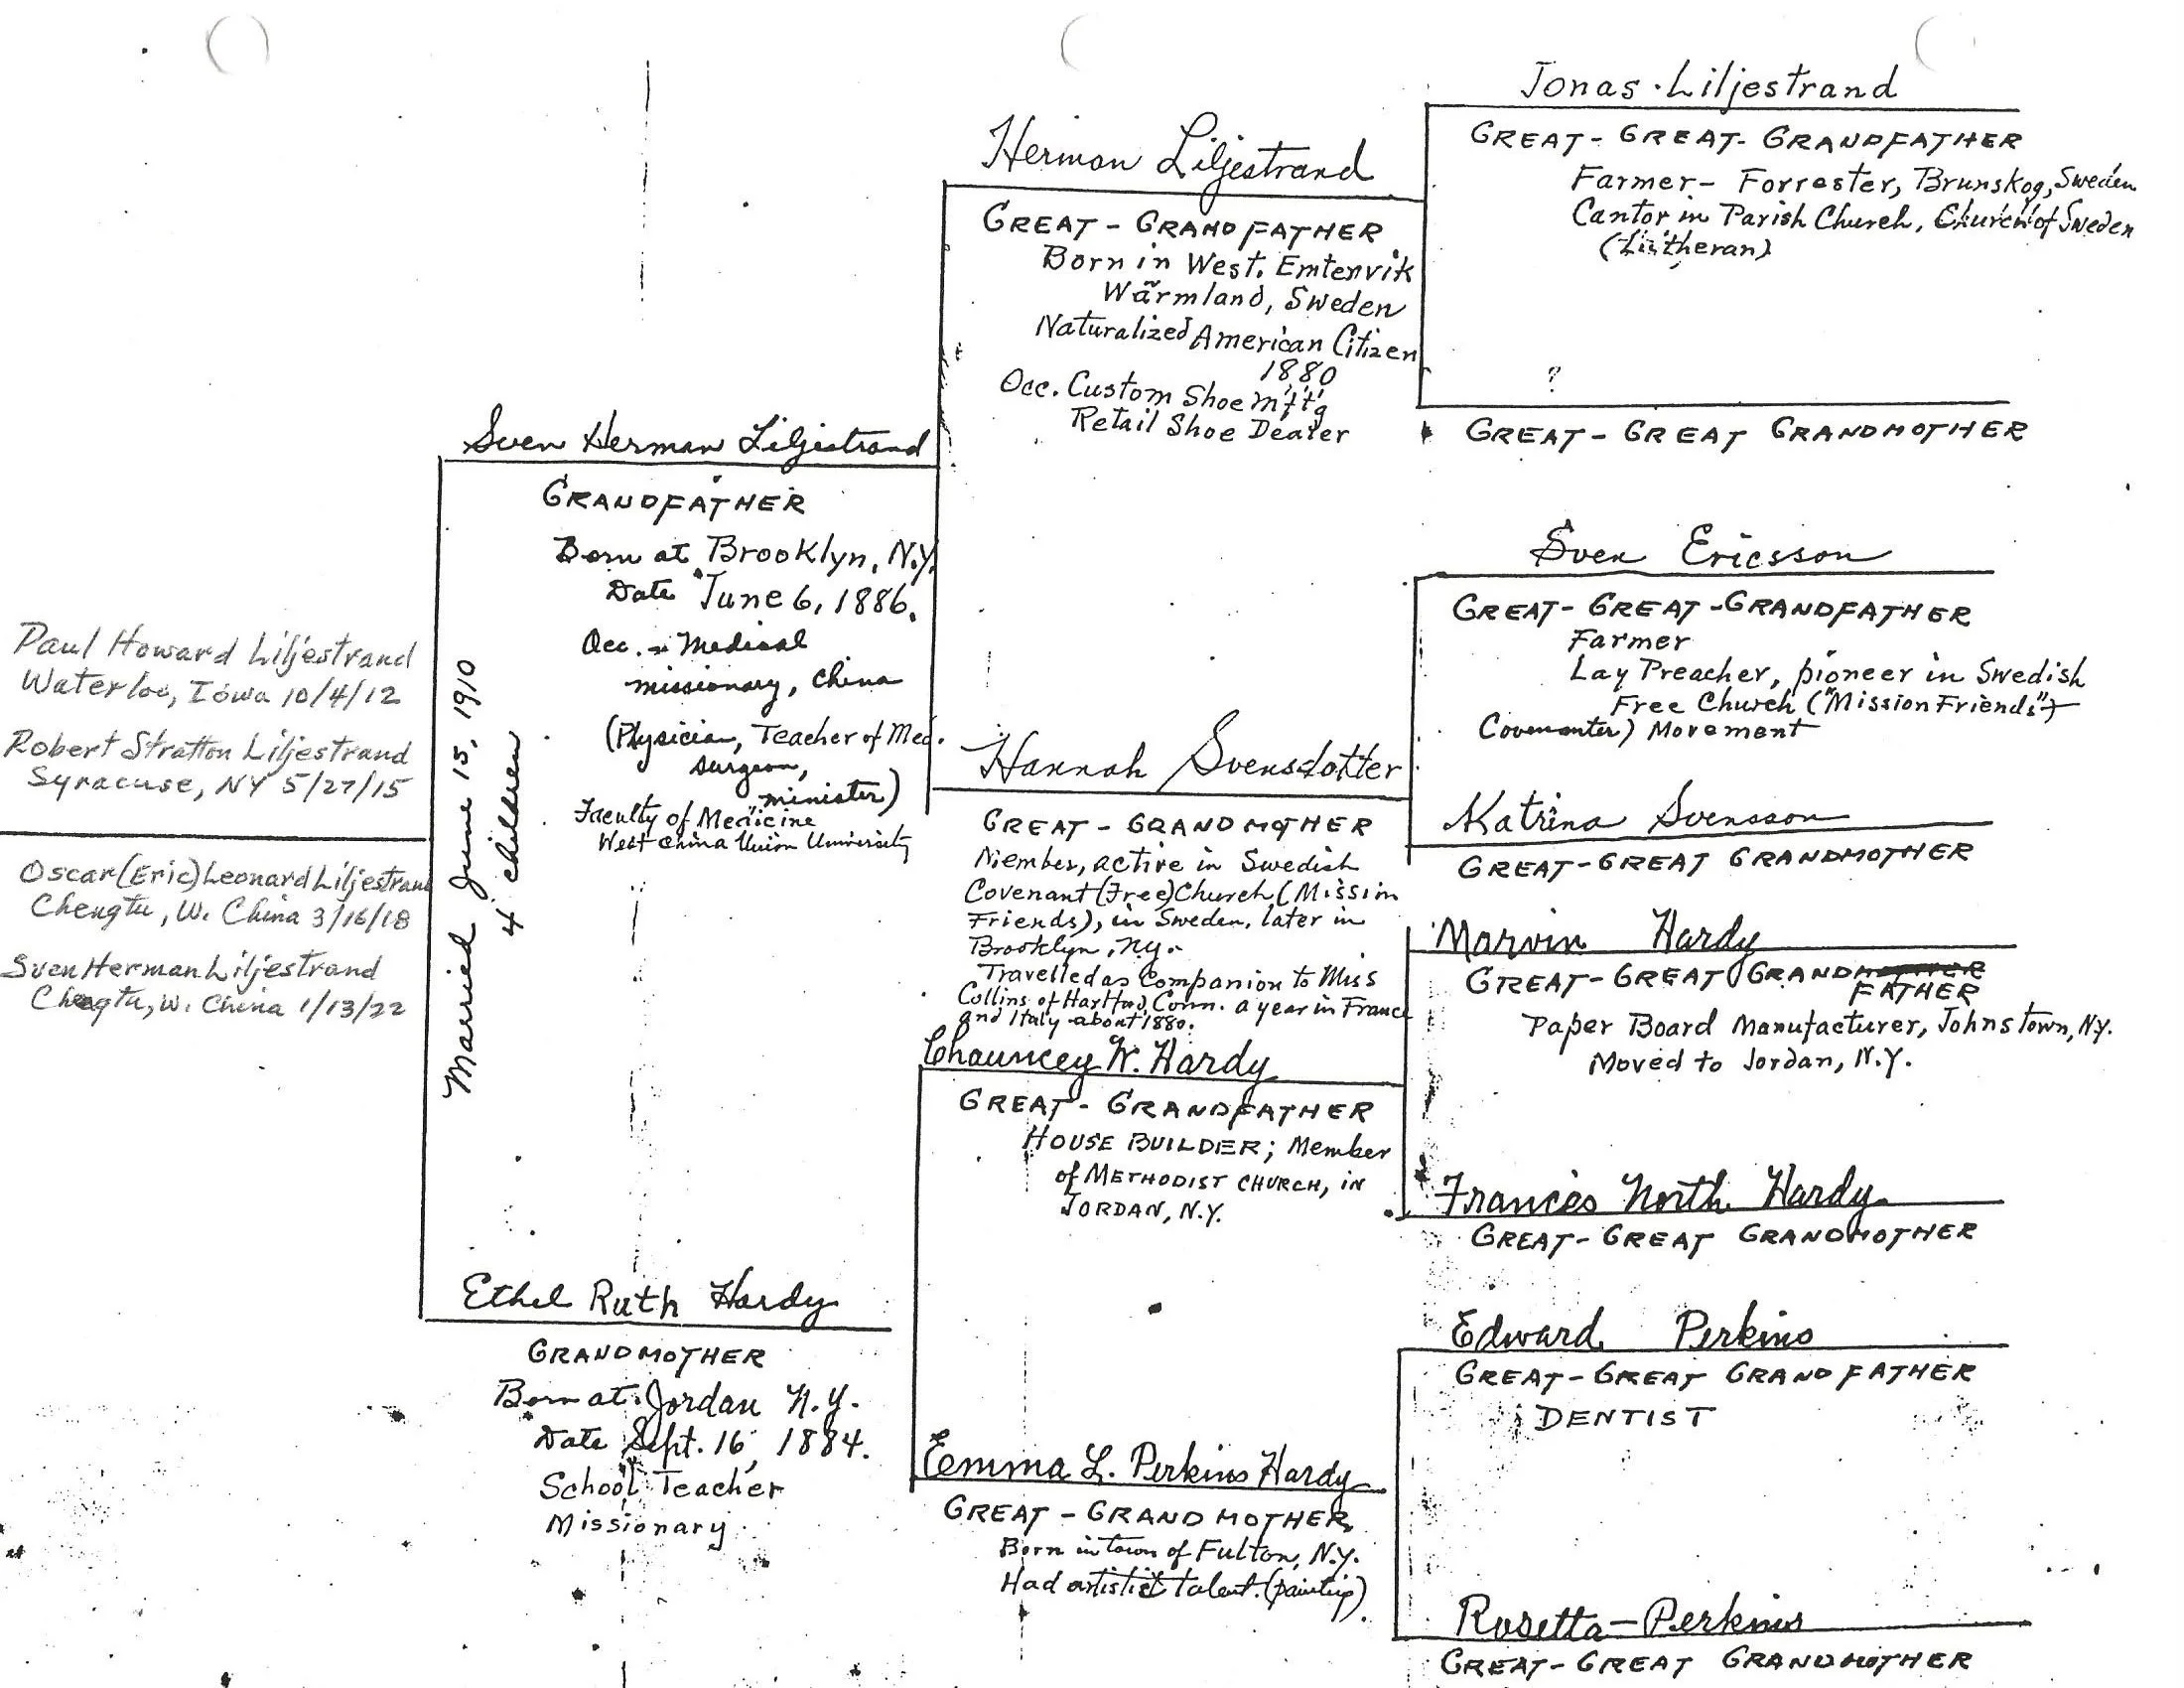 Paul Howard Liljestrand
Waterloo, Iowa 10/4/12
Robert Stratton Liljestrand
Syracuse, NY 5/27/15
Oscar (Eric) Leonard Liljestrand
Chengtu, W. China 3/16/18
Sven Herman Liljestrand
Chengtu, W. China 1/13/22
Married June 15, 1910
4 children
Sven Herman Liljestrand
GRANDFATHER
Born at Brooklyn, N.Y.
Date June 6, 1886.
Occ. - Medical
missionary, China
(Physician, Teacher of Med.
surgeon,
minister)
Faculty of Medicine
West China Union University
Ethel Ruth Hardy
GRANDMOTHER
Born at Jordan N.Y.
Date Sept. 16, 1884.
School Teacher
Missionary
Herman Liljestrand
GREAT - GRANDFATHER
Born in West. Emtervik
Wärmland, Sweden
Naturalized American Citizen
1880
Occ. Custom Shoe m'f't'g
Retail Shoe Dealer
Hannah Svensdotter
GREAT - GRANDMOTHER
Member, active in Swedish
Covenant (Free) Church (Mission
Friends), in Sweden, later in
Brooklyn, N.Y.
Travelled as Companion to Miss
Collins of Hartford, Conn. a year in France
and Italy about 1880.
Chauncey W. Hardy
GREAT - GRANDFATHER
HOUSE BUILDER; Member
of METHODIST CHURCH, IN
JORDAN, N.Y.
Emma L. Perkins Hardy
GREAT - GRANDMOTHER
Born in town of Fulton, N.Y.
Had artistic talent. (painting)
Jonas Liljestrand
GREAT - GREAT - GRANDFATHER
Farmer - Forrester, Brunskog, Sweden
Cantor in Parish Church, Church of Sweden
(Lutheran)
?
GREAT - GREAT GRANDMOTHER
Sven Ericsson
GREAT - GREAT - GRANDFATHER
Farmer
Lay Preacher, pioneer in Swedish
Free Church ("Mission Friends")
Covenanter) Movement
Katrina Svensson
GREAT - GREAT GRANDMOTHER
Marvin Hardy
GREAT - GREAT GRANDMOTHER
FATHER
Paper Board Manufacturer, Johnstown, N.Y.
Moved to Jordan, N.Y.
Frances North Hardy
GREAT - GREAT GRANDMOTHER
Edward Perkins
GREAT - GREAT GRANDFATHER
DENTIST
Rosetta - Perkins
GREAT - GREAT GRANDMOTHER